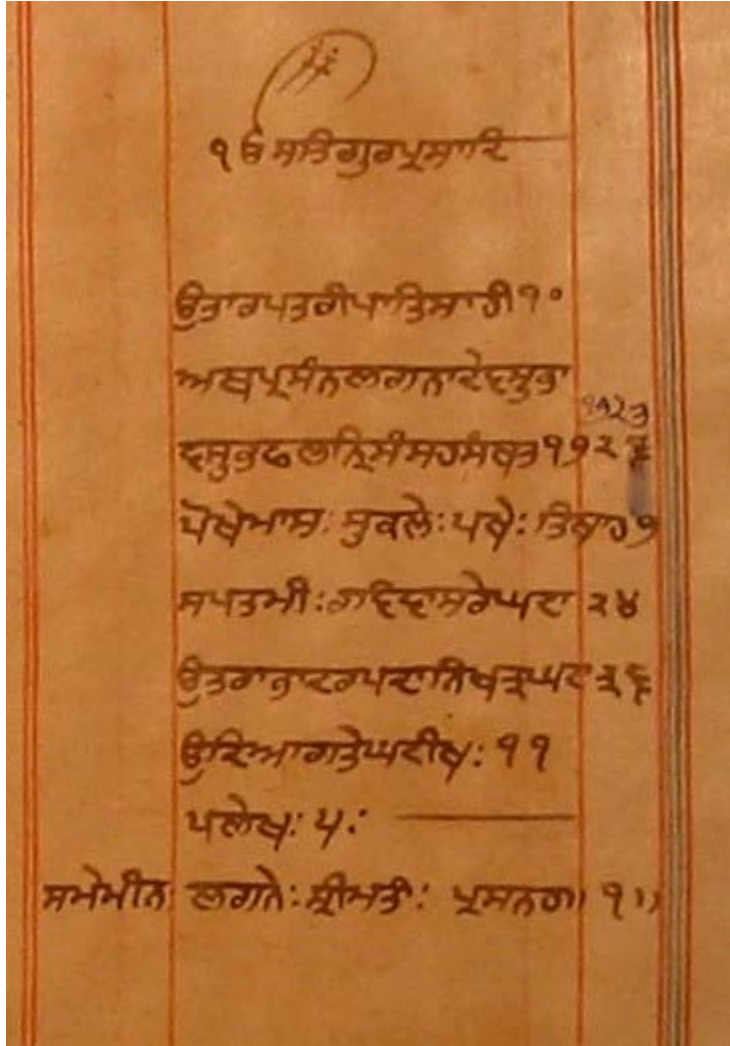 ੴ ਸਤਿਗੁਰਪ੍ਰਸਾਦਿ
ਉਤਾਰਪਤਰੀਪਾਤਿਸਾਹੀ ੧੦
ਅਥਪ੍ਰਸੰਨਲਗਨਾਦੇਵਸੁਭਾ
੧੭੨੩
ਵਸੁਭਫਲਨ੍ਰਿਸੰਸਹਸੰਬਤ ੧੭੨
ਪੋਖੇਮਾਸ: ਸੁਕਲੇ: ਪਖੇ: ਤਿਥਾਹ ੭
ਸਪਤਮੀ: ਰਵਿਵਾਸਰੇਘਟਾ ੨੪
ਉਤਰਾਭਾਦਰਪਦਾਨਿਖਤ੍ਰਘਟ ੩੬
ਉਦਿਆਗਤੇਘਟੀਖ: ੧੧
ਪਲੇਖ: ੫:
ਸਮੇਮੀਨ ਲਗਨੇ: ਸ੍ਰੀਮਤੀ: ਪ੍ਰਸਨਗ॥ ੧॥